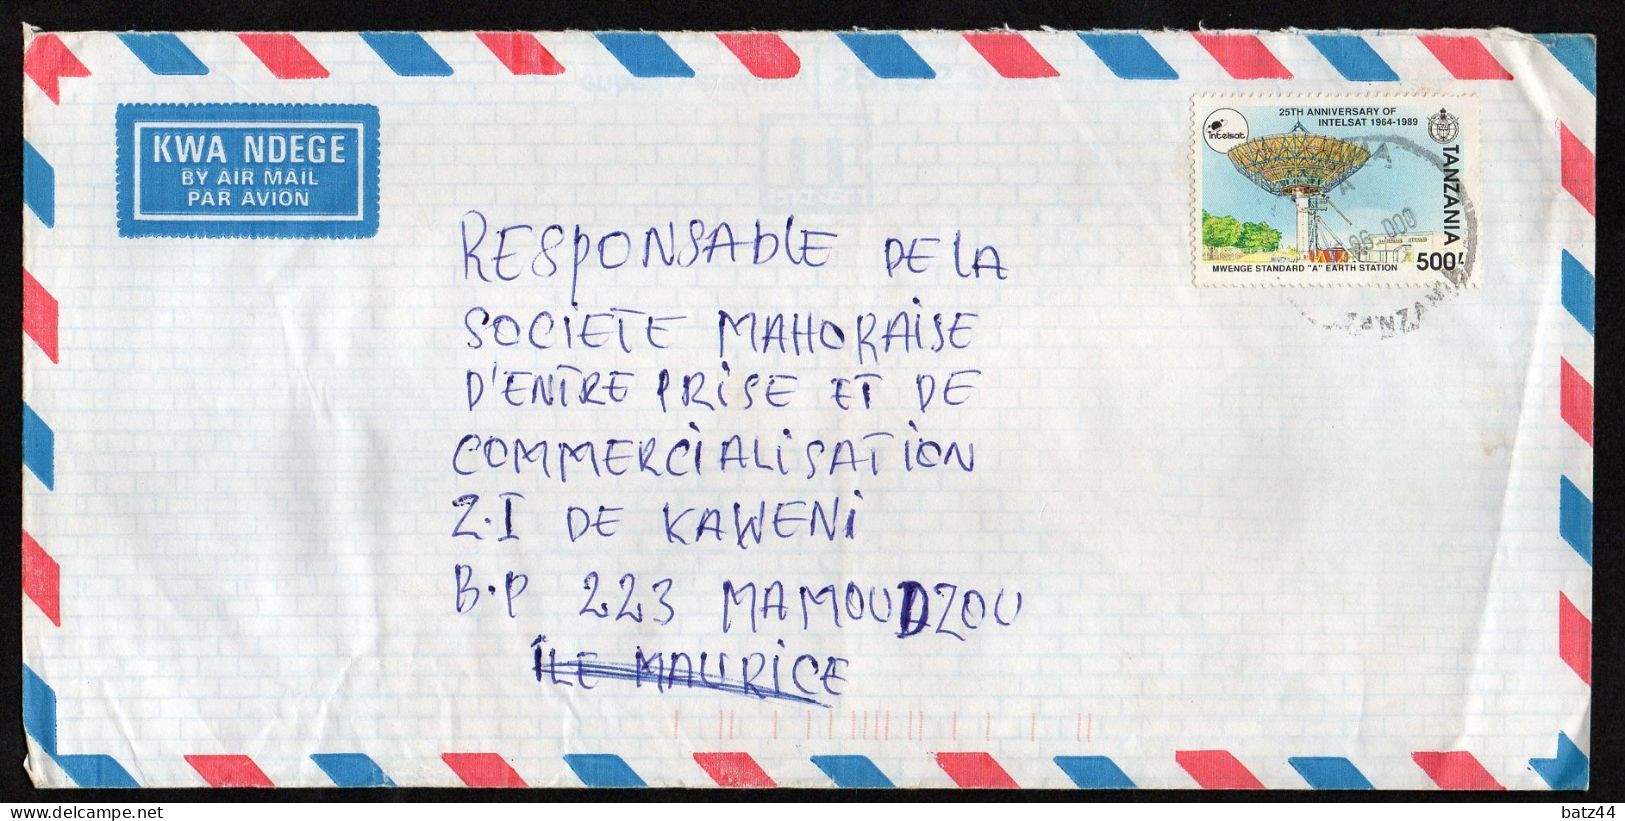 KWA NDEGE
BY AIR MAIL
PAR AVION
25TH ANNIVERSARY OF
INTELSAT 1964-1989
intelsat
TANZANIA
MWENGE STANDARD "A" EARTH STATION
500/-
RESPONSABLE DE LA
SOCIETE MAHORAISE
D'ENTRE PRISE ET DE
COMMERCIALISATION
Z.I DE KAWENI
B.P 223 MAMOUDZOU
ÎLE MAURICE
delcampe.net
batz44